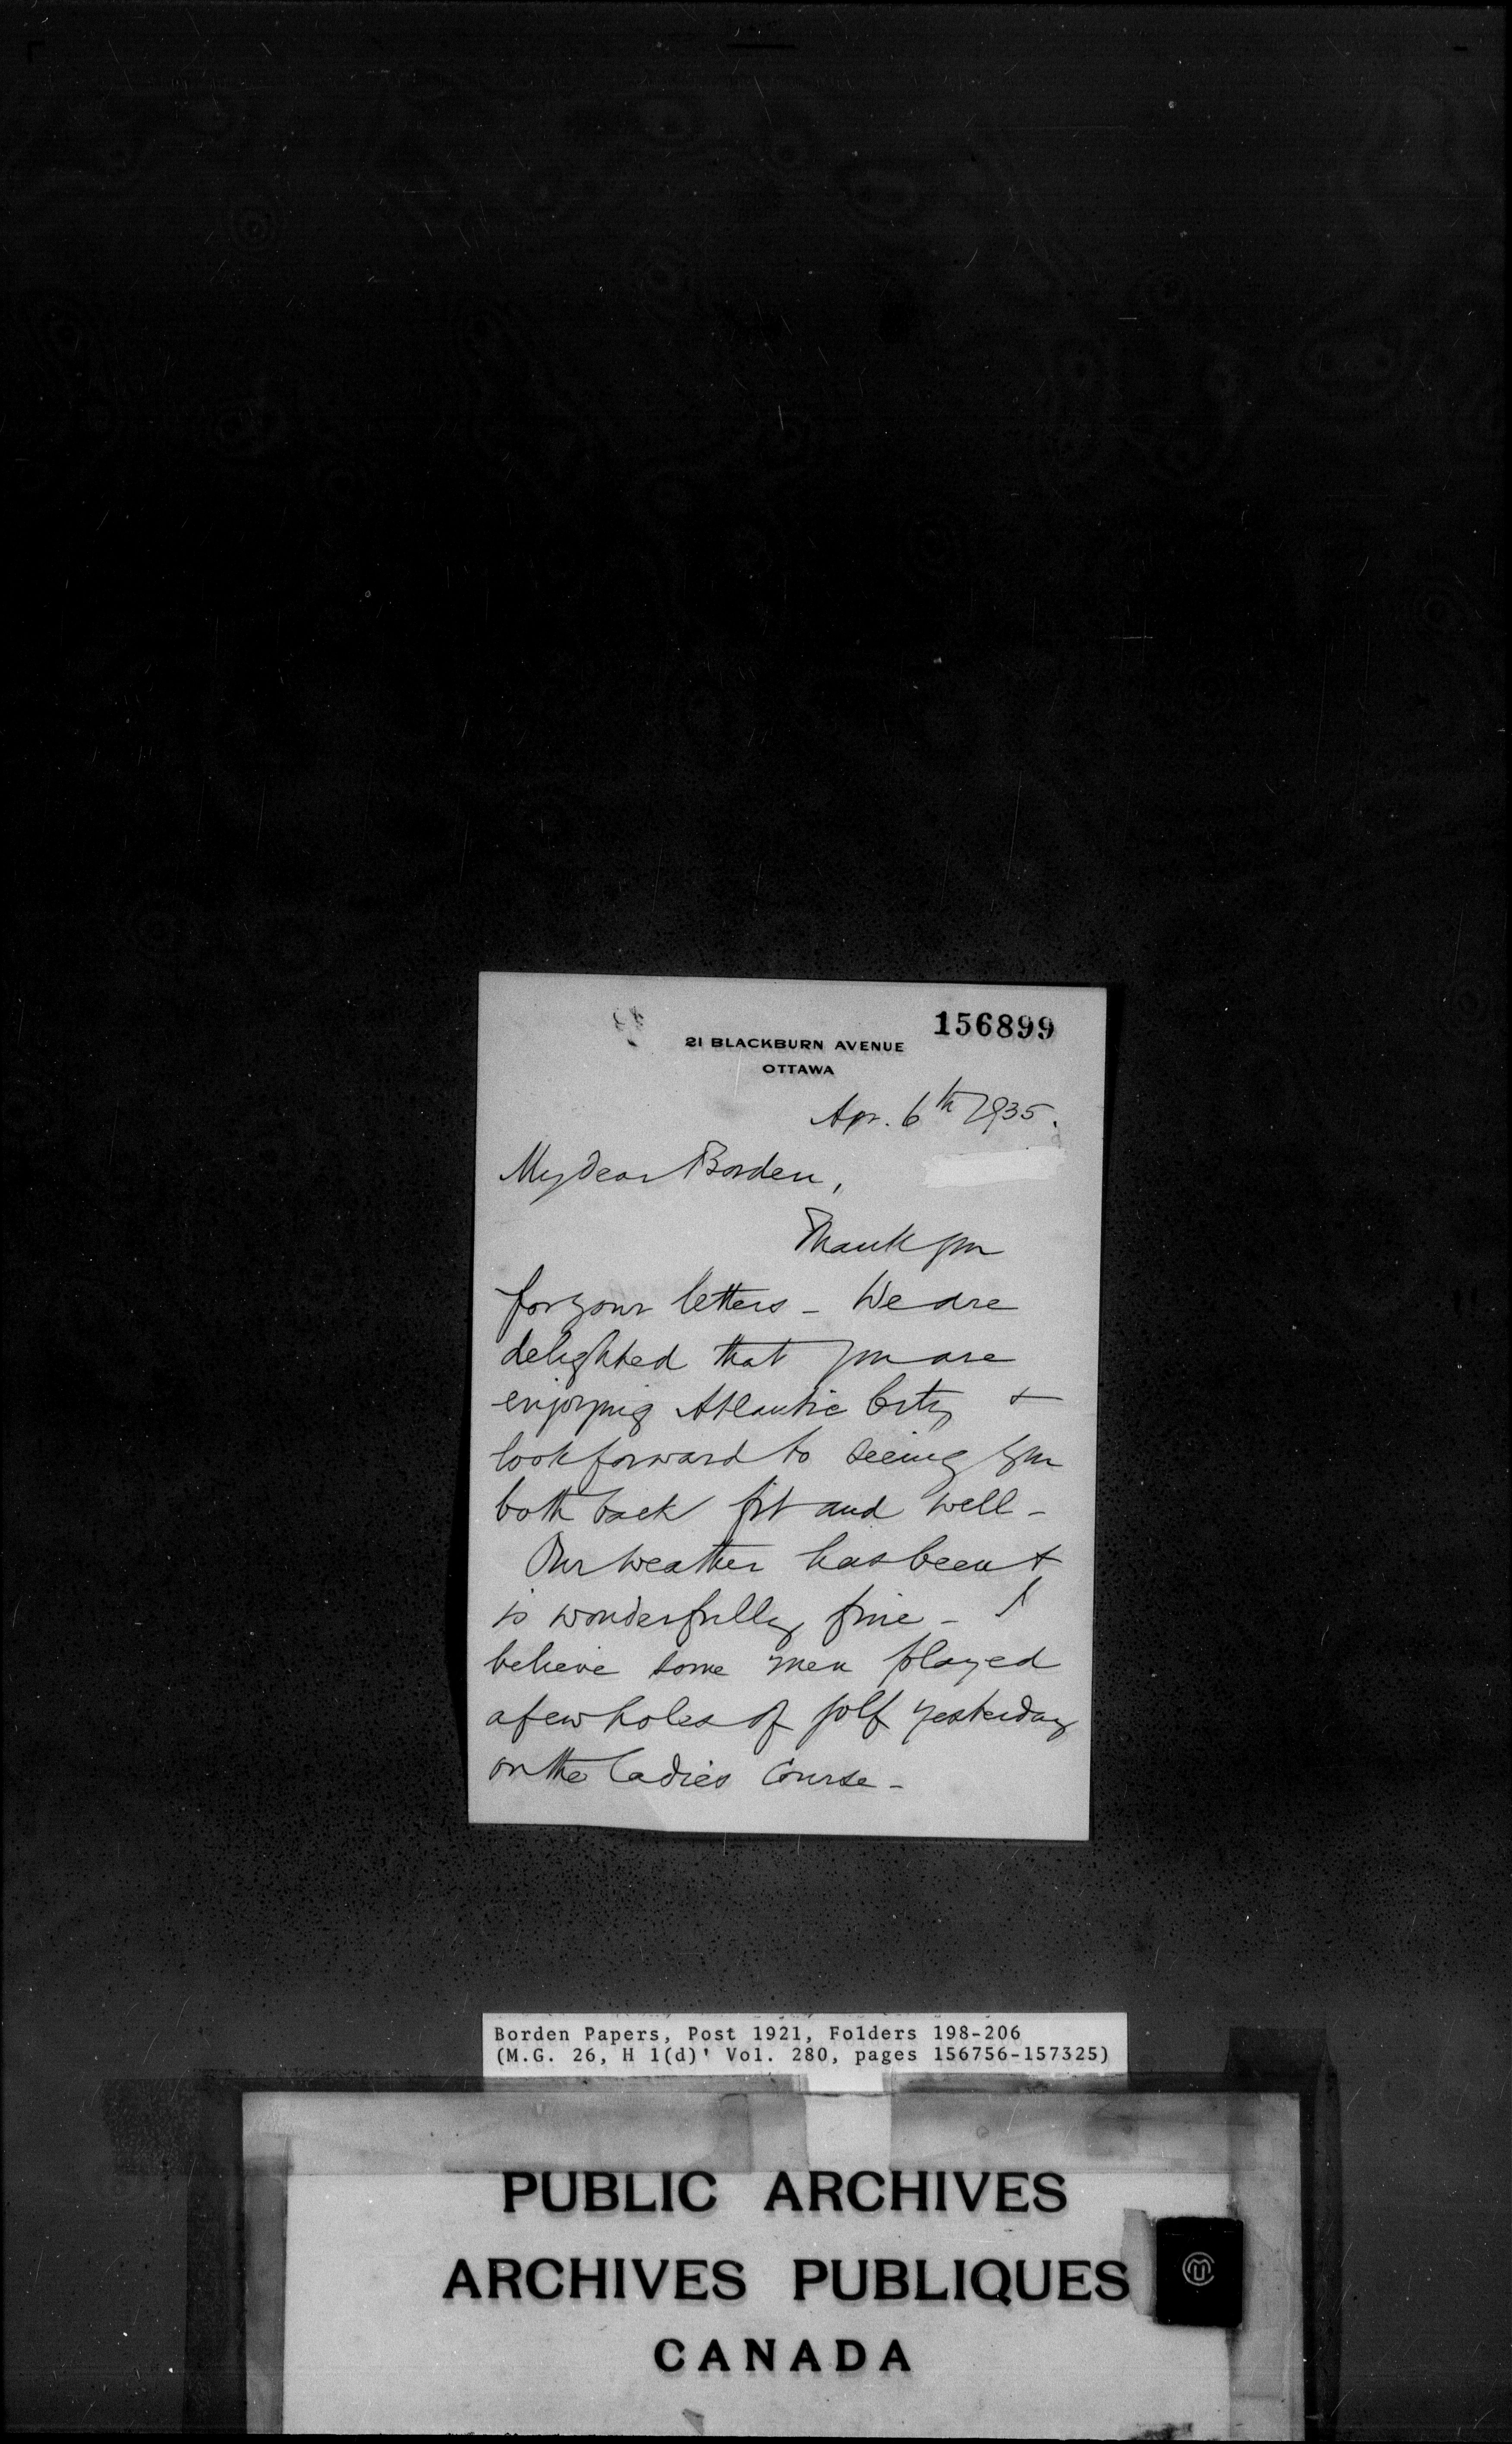 156899
21 BLACKBURN AVENUE
OTTAWA
Apr. 6th 1935.
My dear Borden,
Thank you
for your letters - We are
delighted that you are
enjoying Atlantic City +
look forward to seeing you
both back fit and well -
Our weather has been +
is wonderfully fine - I
believe some men played
a few holes of golf yesterday
on the ladies course -
Borden Papers, Post 1921, Folders 198-206
(M.G. 26, H 1(d)' Vol. 280, pages 156756-157325)
PUBLIC ARCHIVES
ARCHIVES PUBLIQUES
CANADA